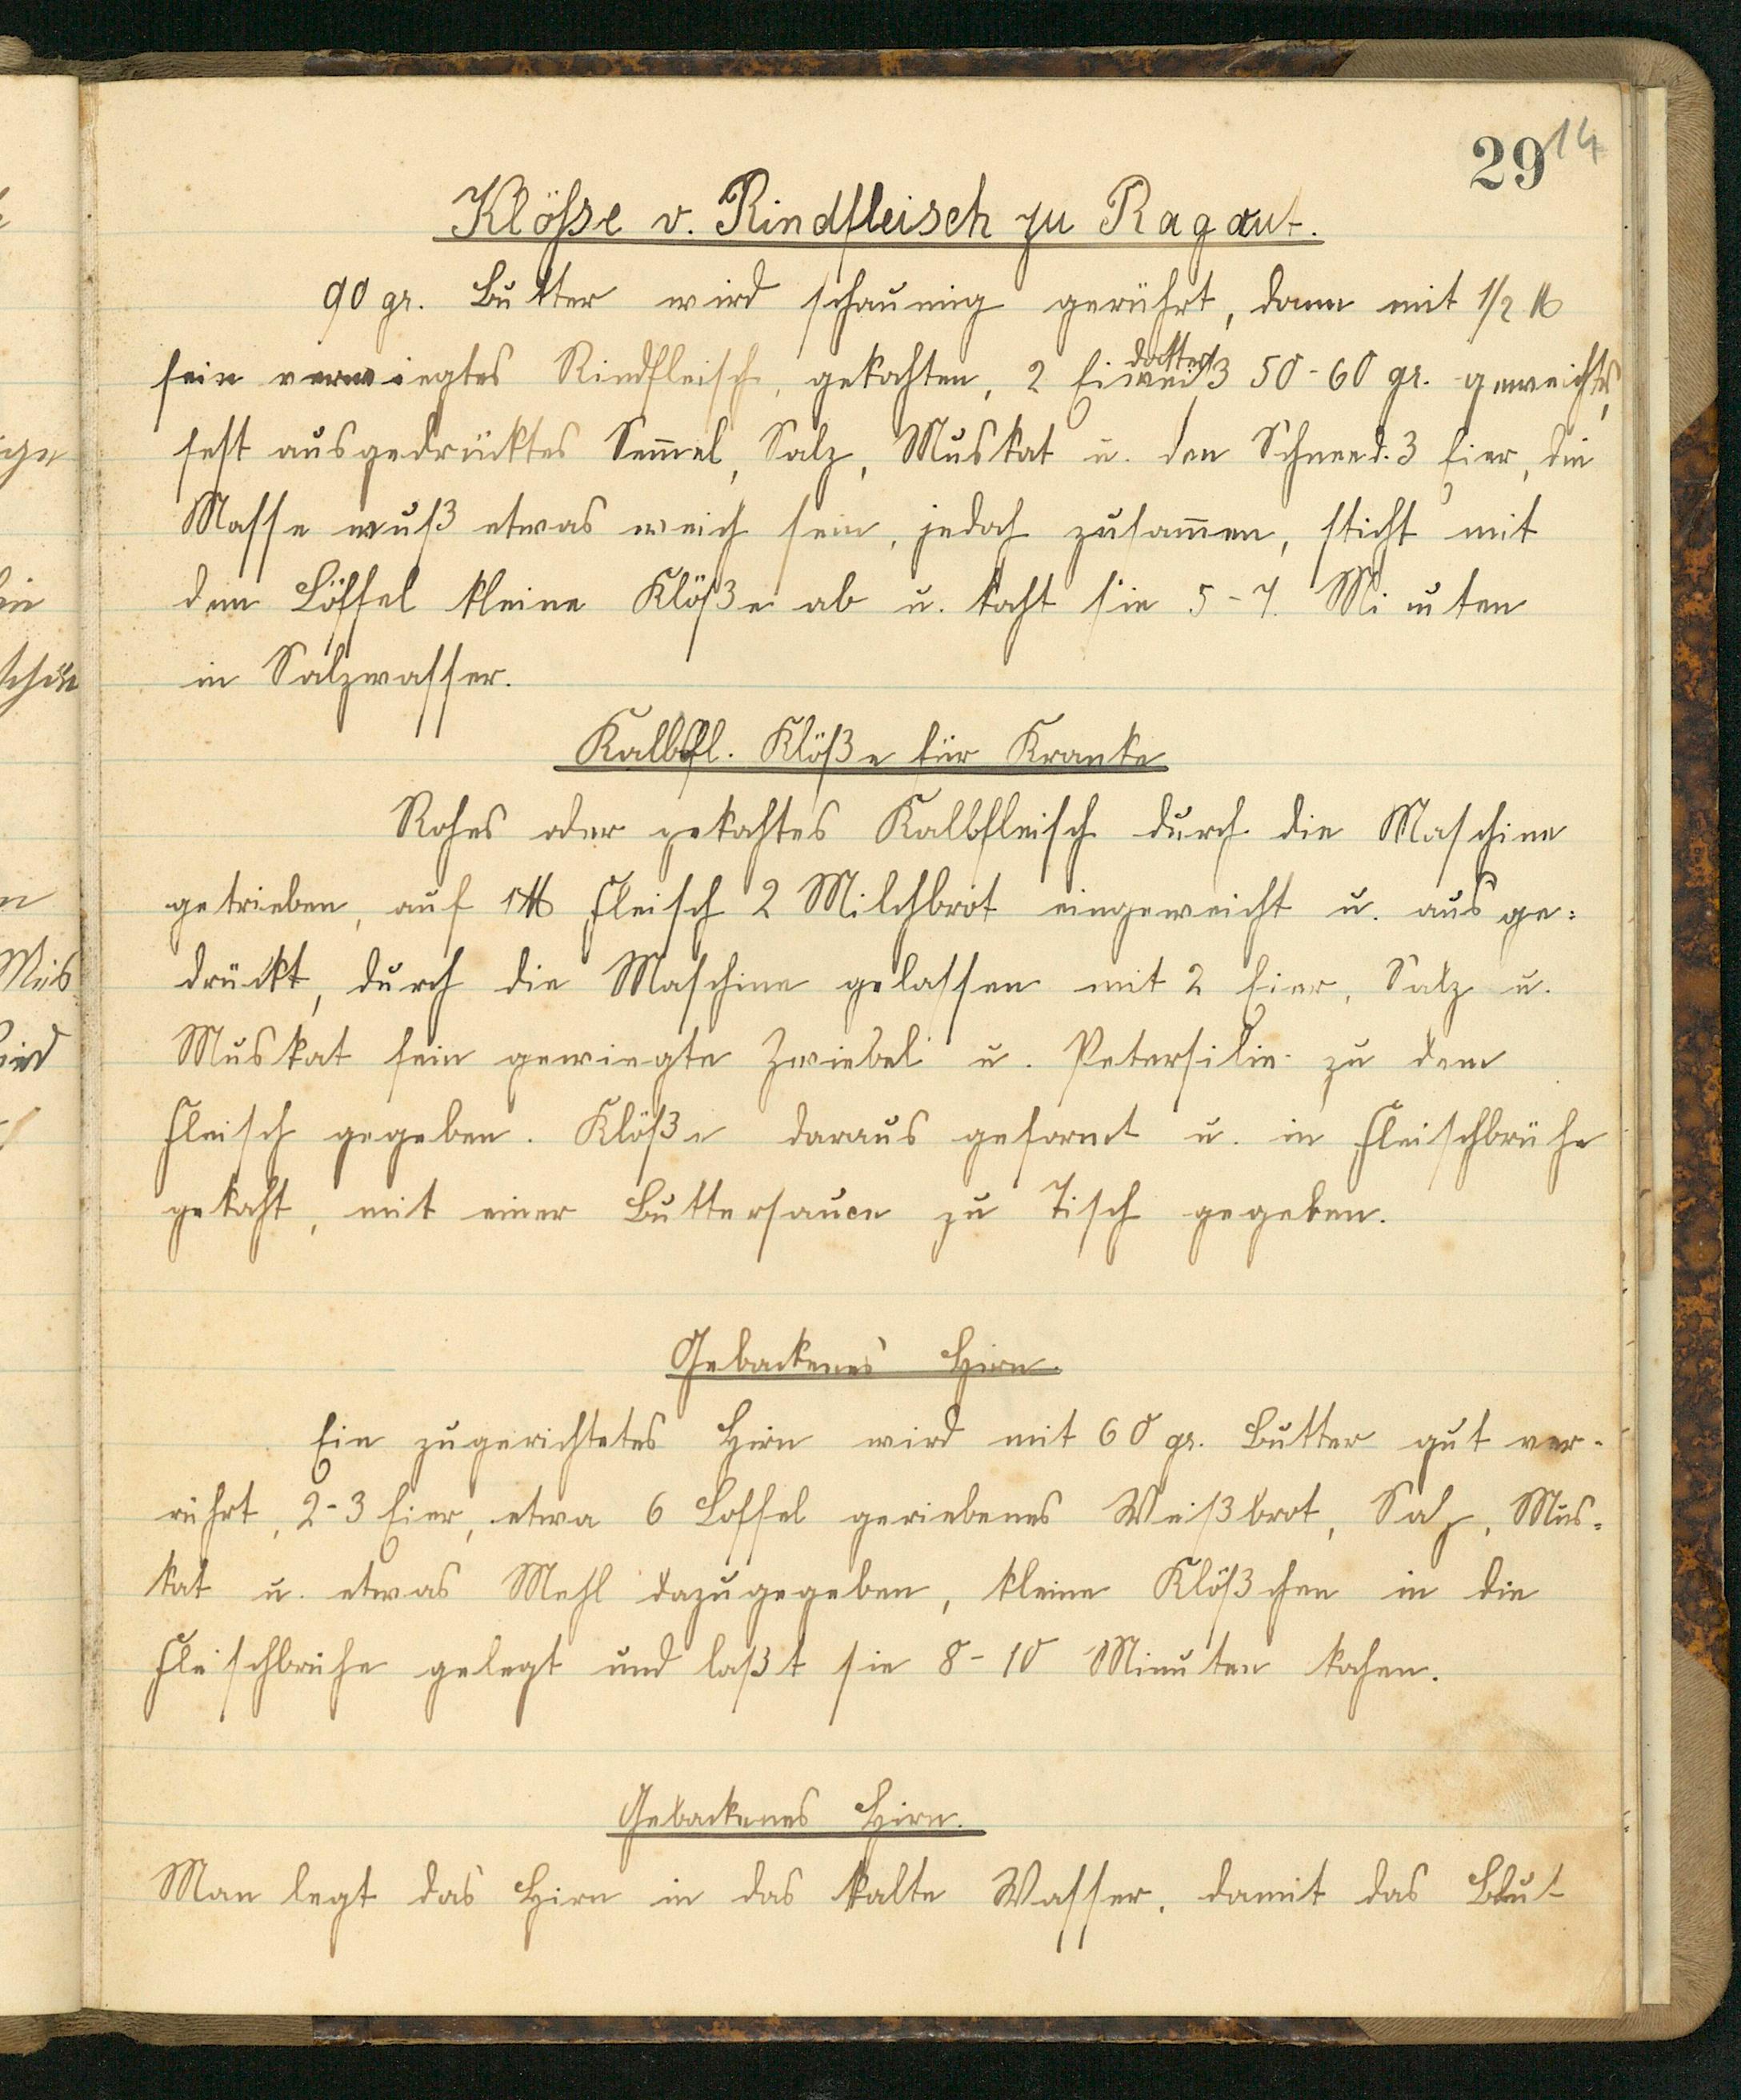 29 14
Klösse v. Rindfleisch zu Ragout.
90 gr. Butter wird schaumig gerührt, dann mit 1/2 ℔
dotter
fein verwiegtes Rindfleisch, gekochten, 2 Eiweiß 50-60 gr. geweichtes,
fest ausgedrücktes Sem̄el, Salz, Muskat u. den Schnee d. 3 Eier, die
Masse muß etwas weich sein, jedoch zusam̄en, sticht mit
dem Löffel kleine Klöße ab u. kocht sie 5-7 Minuten
in Salzwasser.
Kalbsfl. Klöße für Kranke
Rohes oder gekochtes Kalbfleisch durch die Maschine
getrieben, auf 1 ℔ Fleisch 2 Milchbrot eingeweicht u. ausge=
drückt, durch die Maschine gelassen mit 2 Eier, Salz u.
Muskat fein gewiegte Zwiebel u. Petersilie zu dem
Fleisch gegeben. Klöße daraus geformt u. in Fleischbrühe
gekocht, mit einer Buttersauce zu Tisch gegeben.
Gebackenes Hirn.
Ein zugerichtetes Hirn wird mit 60 gr. Butter gut ver-
rührt, 2-3 Eier, etwa 6 Loffel geriebenes Weißbrot, Salz, Mus=
kat u. etwas Mehl dazugegeben, kleine Klößchen in die
Fleischbruhe gelegt und laßt sie 8-10 Minuten kochen.
Gebackenes Hirn.
Man legt das Hirn in das kalte Wasser, damit das Blut